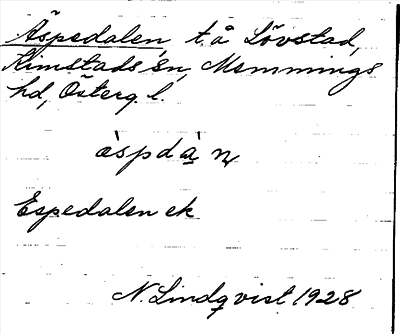 Äspedalen, t. å Lövstad,
Kimstads sn, Memmings
hd, Österg. l.
ä̀spdà̱ n
Espedalen ek
N. Lindqvist 1928